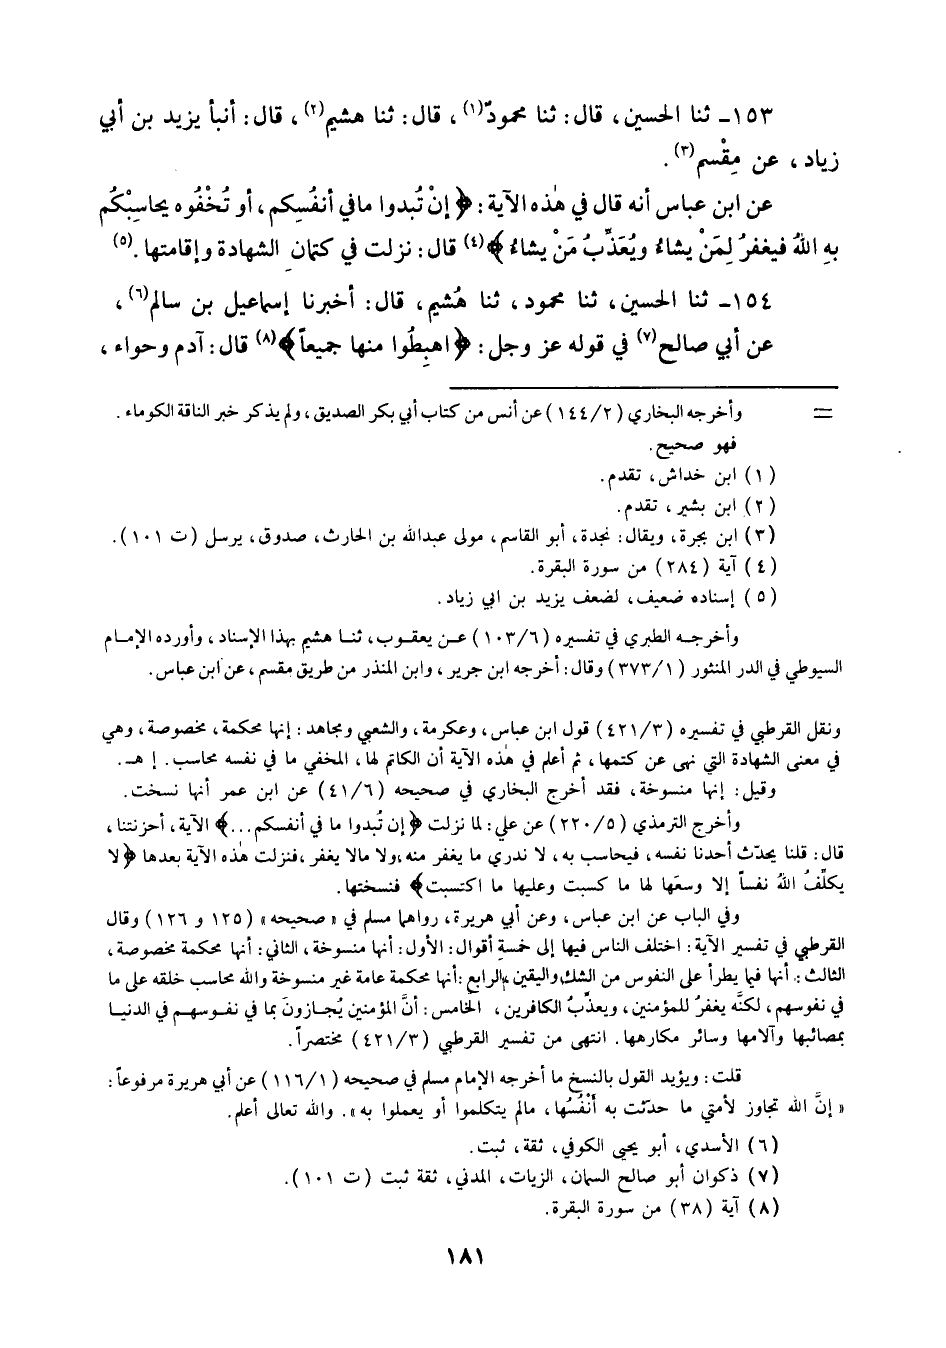 ١٥٣ـ ثنا الحسين، قال: ثنا محمودٌ(١)، قال: ثنا هشيم(٢)، قال: أنبأ يزيد بن أبي
زياد، عن مِقْسم(٣).
عن ابن عباس أنه قال في هٰذه الآية: ﴿إنْ تُبدوا مافي أنفُسِكم، أو تُخْفُوه يحاسِبْكُم
بهِ اللهُ فيغفرُ لِمَنْ يشاءُ ويُعَذِّبُ مَنْ يشاءُ﴾(٤) قال: نزلت في كتمانِ الشهادة وإقامتها.(٥)
١٥٤ـ ثنا الحسين، ثنا محمود، ثنا هُشيم، قال: أخبرنا إسماعيل بن سالم(٦)،
عن أبي صالح(٧) في قوله عز وجل: ﴿اهبِطُوا منها جميعاً﴾(٨) قال: آدم وحواء،
= وأخرجه البخاري (١٤٤/٢) عن أنس من كتاب أبي بكر الصديق، ولم يذكر خبر الناقة الكوماء.
فهو صحيح.
(١) ابن خداش، تقدم.
(٢) ابن بشير، تقدم.
(٣) ابن بجرة، ويقال: نجدة، أبو القاسم، مولى عبدالله بن الحارث، صدوق، يرسل (ت ١٠١).
(٤) آية (٢٨٤) من سورة البقرة.
(٥) إسناده ضعيف، لضعف يزيد بن ابي زياد.
وأخرجه الطبري في تفسيره (١٠٣/٦) عن يعقوب، ثنا هشيم بهذا الإسناد، وأورده الإمام
السيوطي في الدر المنثور (٣٧٣/١) وقال: أخرجه ابن جرير، وابن المنذر من طريق مقسم، عن ابن عباس.
ونقل القرطبي في تفسيره (٤٢١/٣) قول ابن عباس، وعكرمة، والشعبي ومجاهد: إنها محكمة، مخصوصة، وهي
في معنى الشهادة التي نهى عن كتمها، ثم أعلم في هٰذه الآية أن الكاتم لها، المخفي ما في نفسه محاسب. إ هـ.
وقيل: إنها منسوخة، فقد أخرج البخاري في صحيحه (٤١/٦) عن ابن عمر أنها نسخت.
وأخرج الترمذي (٢٢٠/٥) عن علي: لما نزلت ﴿إن تُبدوا ما في أنفسكم...﴾ الآية، أحزنتنا،
قال: قلنا يحدّث أحدنا نفسه، فيحاسب به، لا ندري ما يغفر منه، ولا مالا يغفر، فنزلت هٰذه الآية بعدها ﴿لا
يكلِّفُ اللهُ نفساً إلا وسعَها لها ما كسبت وعليها ما اكتسبت﴾ فنسختها.
وفي الباب عن ابن عباس، وعن أبي هريرة، رواهما مسلم في «صحيحه» (١٢٥ و ١٢٦) وقال
القرطبي في تفسير الآية: اختلف الناس فيها إلى خمسة أقوال: الأول: أنها منسوخة، الثاني: أنها محكمة مخصوصة،
الثالث: أنها فيما يطرأ على النفوس من الشك واليقين، الرابع: أنها محكمة عامة غير منسوخة والله محاسب خلقه على ما
في نفوسهم، لكنَّه يغفرُ للمؤمنين، ويعذّبُ الكافرين، الخامس: أنَّ المؤمنين يُجازونَ بما في نفوسهم في الدنيا
بمصائبها وآلامها وسائر مكارهها. انتهى من تفسير القرطبي (٤٢١/٣) مختصراً.
قلت: ويؤيد القول بالنسخ ما أخرجه الإمام مسلم في صحيحه (١١٦/١) عن أبي هريرة مرفوعاً:
«إنَّ الله تجاوز لأمتي ما حدّثت به أنْفُسُها، مالم يتكلموا أو يعملوا به». والله تعالى أعلم.
(٦) الأسدي، أبو يحيى الكوفي، ثقة، ثبت.
(٧) ذكوان أبو صالح السمان، الزيات، المدني، ثقة ثبت (ت ١٠١).
(٨) آية (٣٨) من سورة البقرة.
١٨١